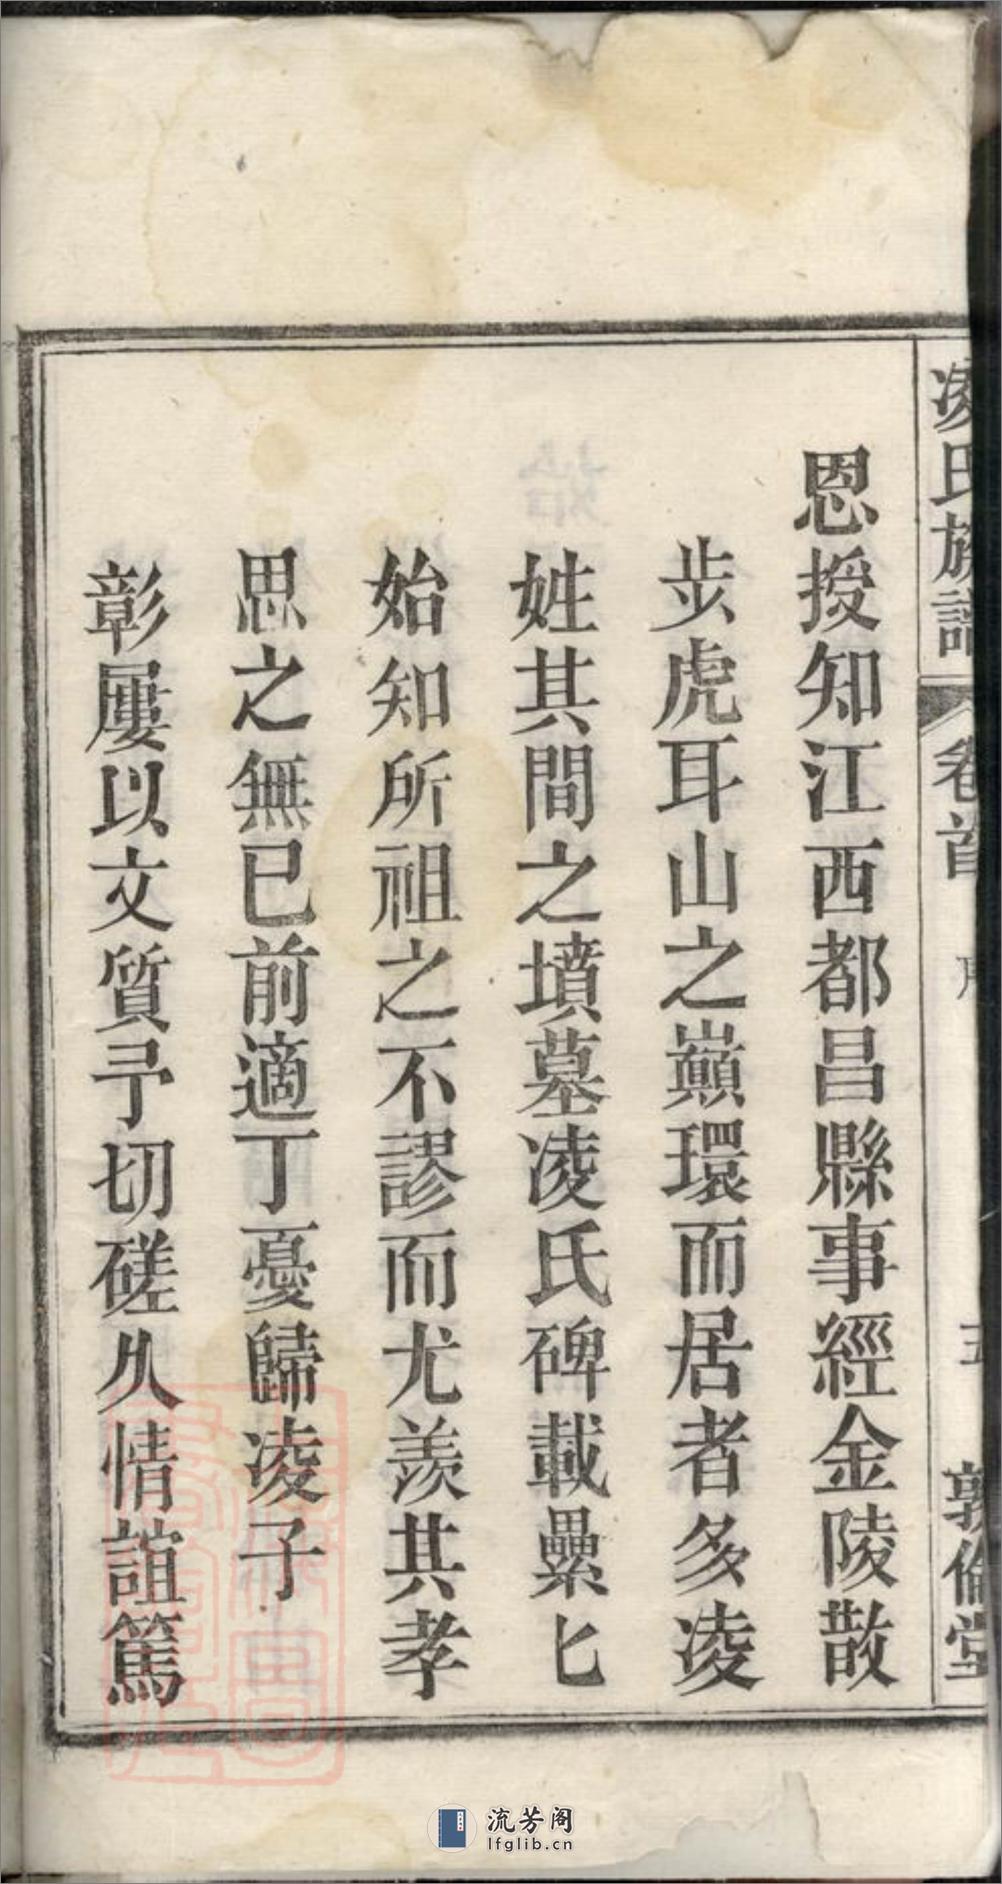 凌氏族譜 卷首 序 五 敦倫堂
恩授知江西都昌縣事經金陵散
步虎耳山之巔環而居者多凌
姓其間之墳墓凌氏碑載纍匕
始知所祖之不謬而尤羨其孝
思之無已前適丁憂歸凌子
彰屢以文質予切磋久情誼篤
流芳阁
lfglib.cn